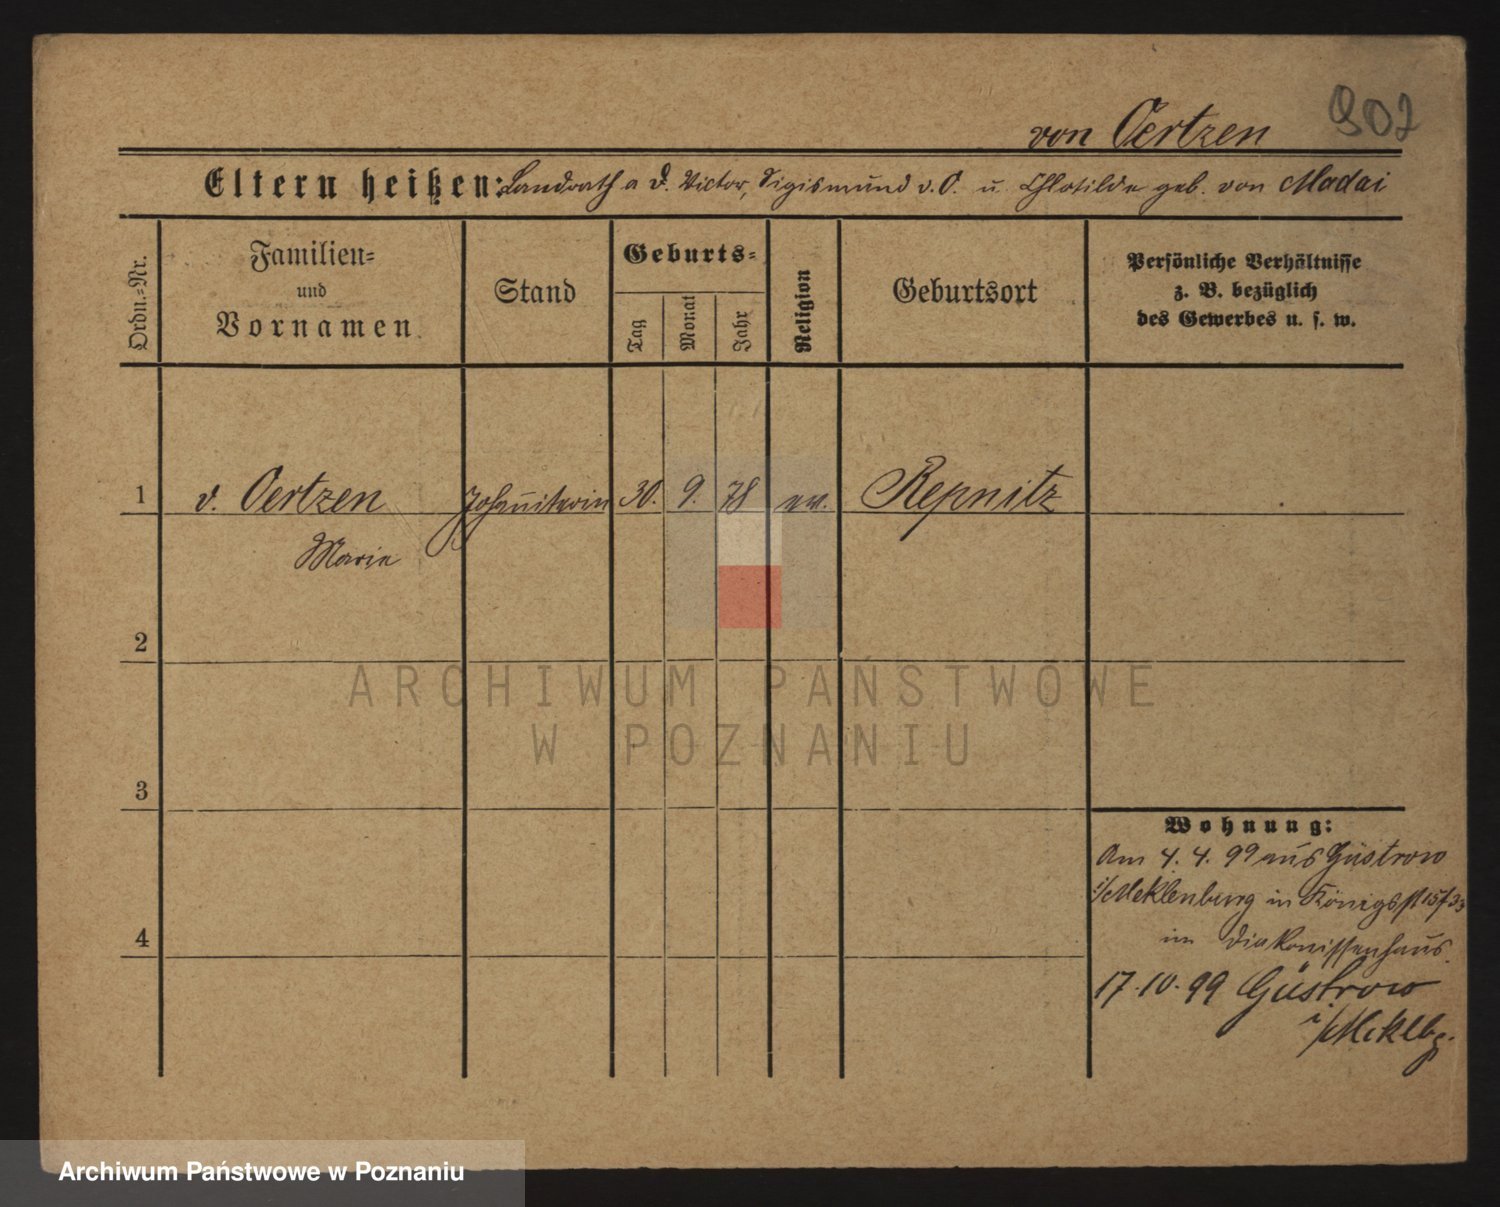 von Oertzen 902
Eltern heißen: Landrath a D. Victor, Sigismund v. O. u. Chlotilde geb. von Madai
Ordn.-Nr.
Familien-
und
Vornamen
Stand
Geburts-
Tag
Monat
Jahr
Religion
Geburtsort
Persönliche Verhältnisse
z. B. bezüglich
des Gewerbes u. s. w.
1 v. Oertzen Johanniterin 30. 9. 78 ev. Repnitz
Marie
2
ARCHIWUM PAŃSTWOWE
W POZNANIU
3
Wohnung:
Am 4. 4. 99 aus Güstrow
i/Meklenburg in Königsst 15/33
im Diakonissenhaus.
4
17.10.99 Güstrow
i/Meklbg.
Archiwum Państwowe w Poznaniu